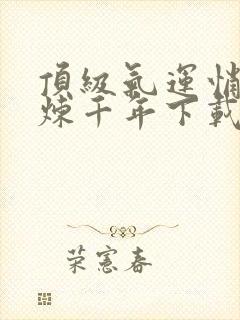 頂級氣運悄
煉千年下載
荣憲春